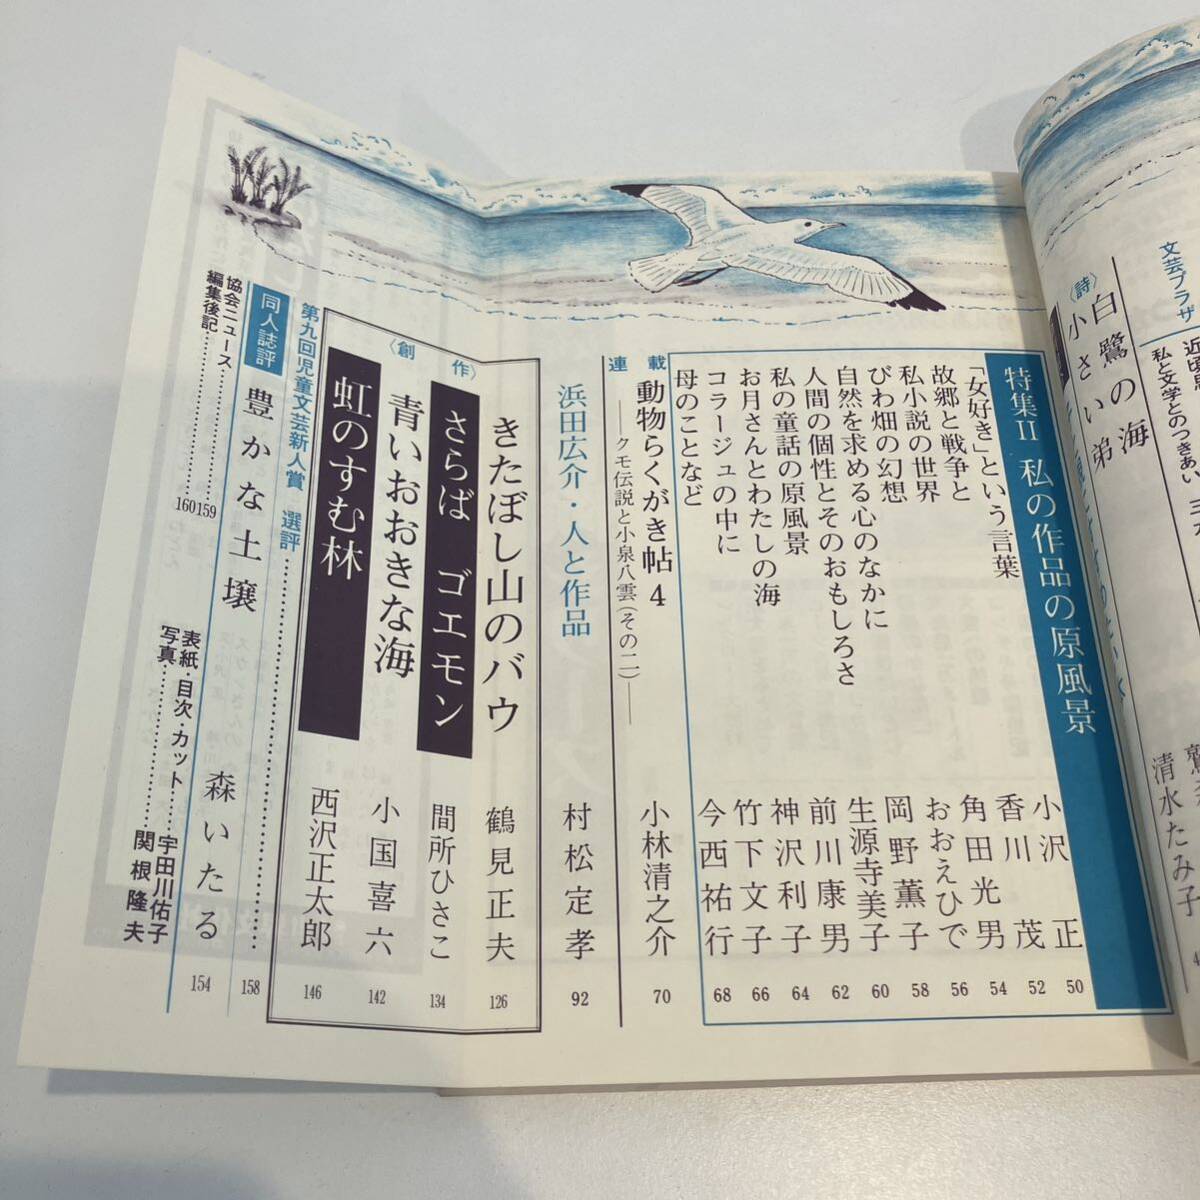 文芸プラザ
私と文学とのつきあい
〈詩〉
白鷺の海
小さい弟
清水たみ子
特集II 私の作品の原風景
「女好き」という言葉 小沢正 50
故郷と戦争と 香川茂 52
私小説の世界 角田光男 54
びわ畑の幻想 おおえひで 56
自然を求める心のなかに 岡野薫子 58
人間の個性とそのおもしろさ 生源寺美子 60
私の童話の原風景 前川康男 62
お月さんとわたしの海 神沢利子 64
コラージュの中に 竹下文子 66
母のことなど 今西祐行 68
連載 動物らくがき帖 4 小林清之介 70
――クモ伝説と小泉八雲(その二)――
浜田広介・人と作品 村松定孝 92
〈創作〉
きたぼし山のバウ 鶴見正夫 126
さらば ゴエモン 間所ひさこ 134
青いおおきな海 小国喜六 142
虹のすむ林 西沢正太郎 146
第九回児童文芸新人賞 選評 158
同人誌評 豊かな土壌 森いたる 154
協会ニュース 159
編集後記 160
表紙・目次・カット 宇田川佑子
写真 関根隆夫